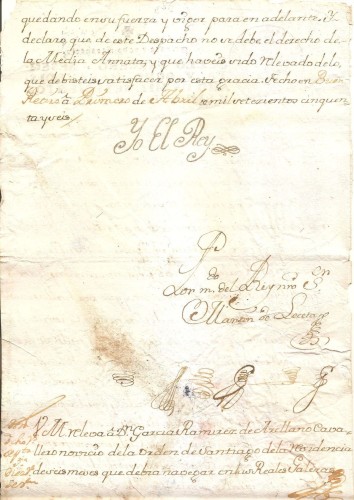 quedando en su fuerza y vigor para en adelante. Y
declaro, que de este Despacho no se debe el derecho de
la Media Annata, y que haveis sido relevado de lo
que debisteis satisfacer por esta gracia. Fecho en Buen
Retiro à de Abril de mil setecientos cinquen
ta y seis
Yo El Rey
Por m. del Rey nro Sr
Martin de Leceta
V.M. releva à Dn Garcia Ramirez de Arellano Cava
llero novicio de la Orden de Santiago de la residencia
de seis meses que debia navegar en sus Reales Galeras